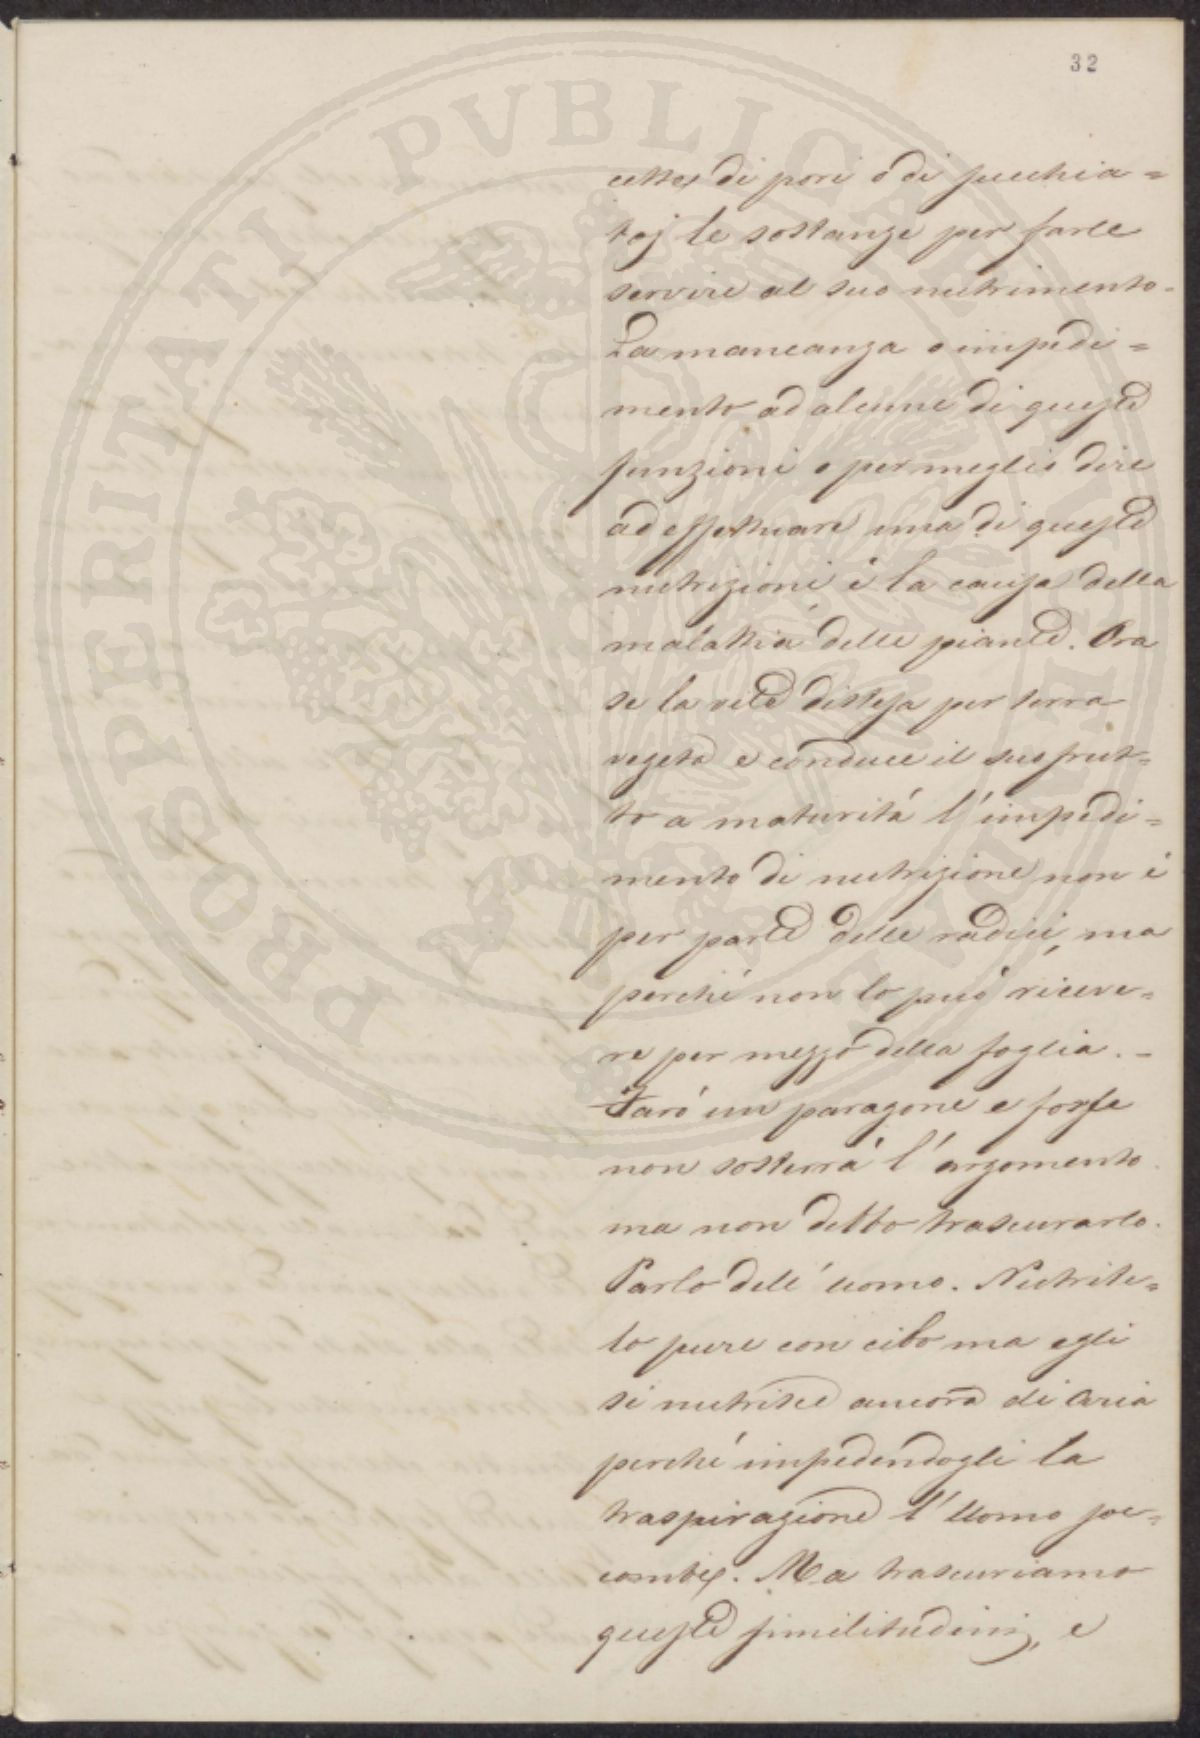 32
PROSPERITATI PVBLICAE
cettez di pori o di succhia=
toj le sostanze per farle
servire al suo nutrimento.
La mancanza o impedi=
mento ad alcune di queste
funzioni o per meglio dire
ad effettuare una di queste
nutrizioni é la causa della
malattia delle piante. Ora
se la vite distesa per terra
vegeta e conduce il suo frut=
to a maturitá l'impedi=
mento di nutrizione non é
per parte delle radici, ma
perché non lo puó riceve=
re per mezzo della foglia. -
Faró un paragone e forse
non sosterrá l'argomento
ma non debbo trascurarlo.
Parlo dell'uomo. Nutrite=
lo pure con cibo ma egli
si nutrisce ancora di aria
perché impedendogli la
traspirazione l'Uomo soc=
combe. Ma trascuriamo
queste similitudini, e